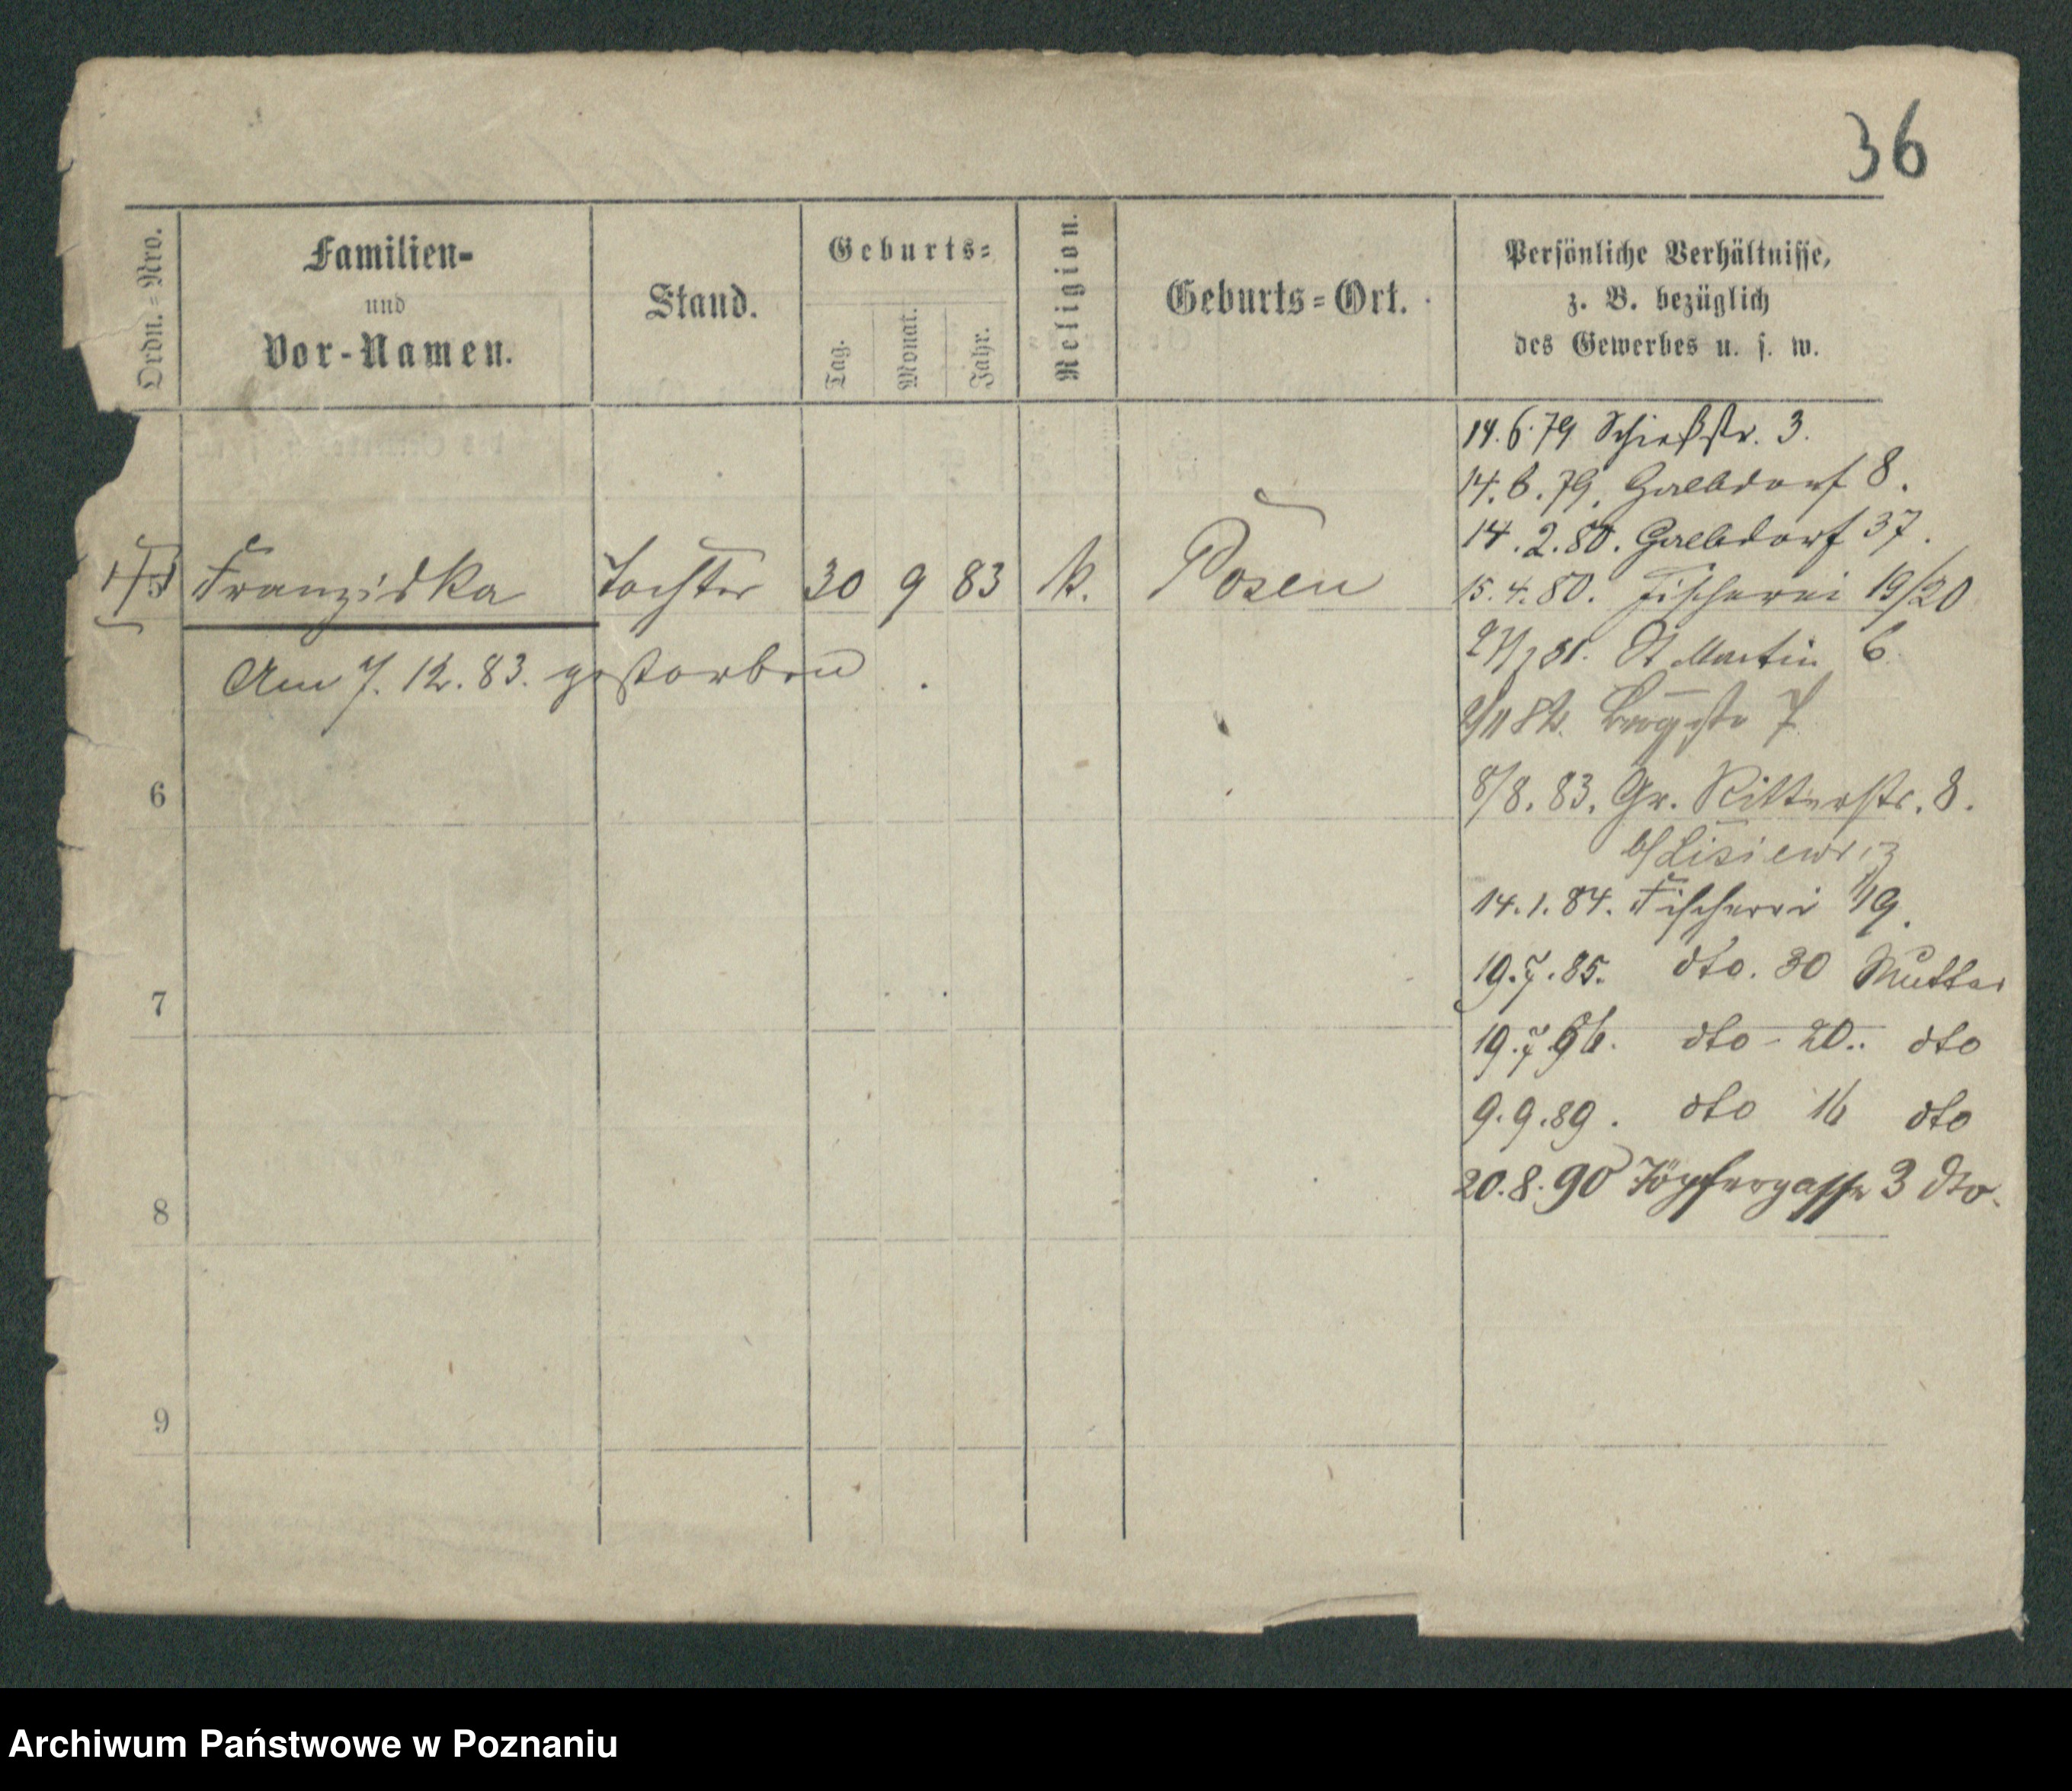 36
Ordn.=Nro.
Familien-
und
Vor-Namen.
Stand.
Geburts=
Tag.
Monat.
Jahr.
Religion.
Geburts=Ort.
Persönliche Verhältnisse,
z. B. bezüglich
des Gewerbes u. s. w.
14.6.79 Schießstr. 3.
14.6.79. Halbdorf 8.
14.2.80. Halbdorf 37.
Franziska Tochter 30 9 83 k. Posen
15.4.80. Fischerei 19/20
Am 7.12.83. gestorben.
St Martin 6
Bergstr 7
6
8/8.83. Gr. Ritterstr. 8.
b/Lisiewicz
14.1.84. Fischerei 19.
7
19.7.85. dto. 30 Mutter
19.7.86. dto - 20.. dto
9.9.89. dto 16 dto
8
20.8.90 Töpfergasse 3 dto.
9
Archiwum Państwowe w Poznaniu